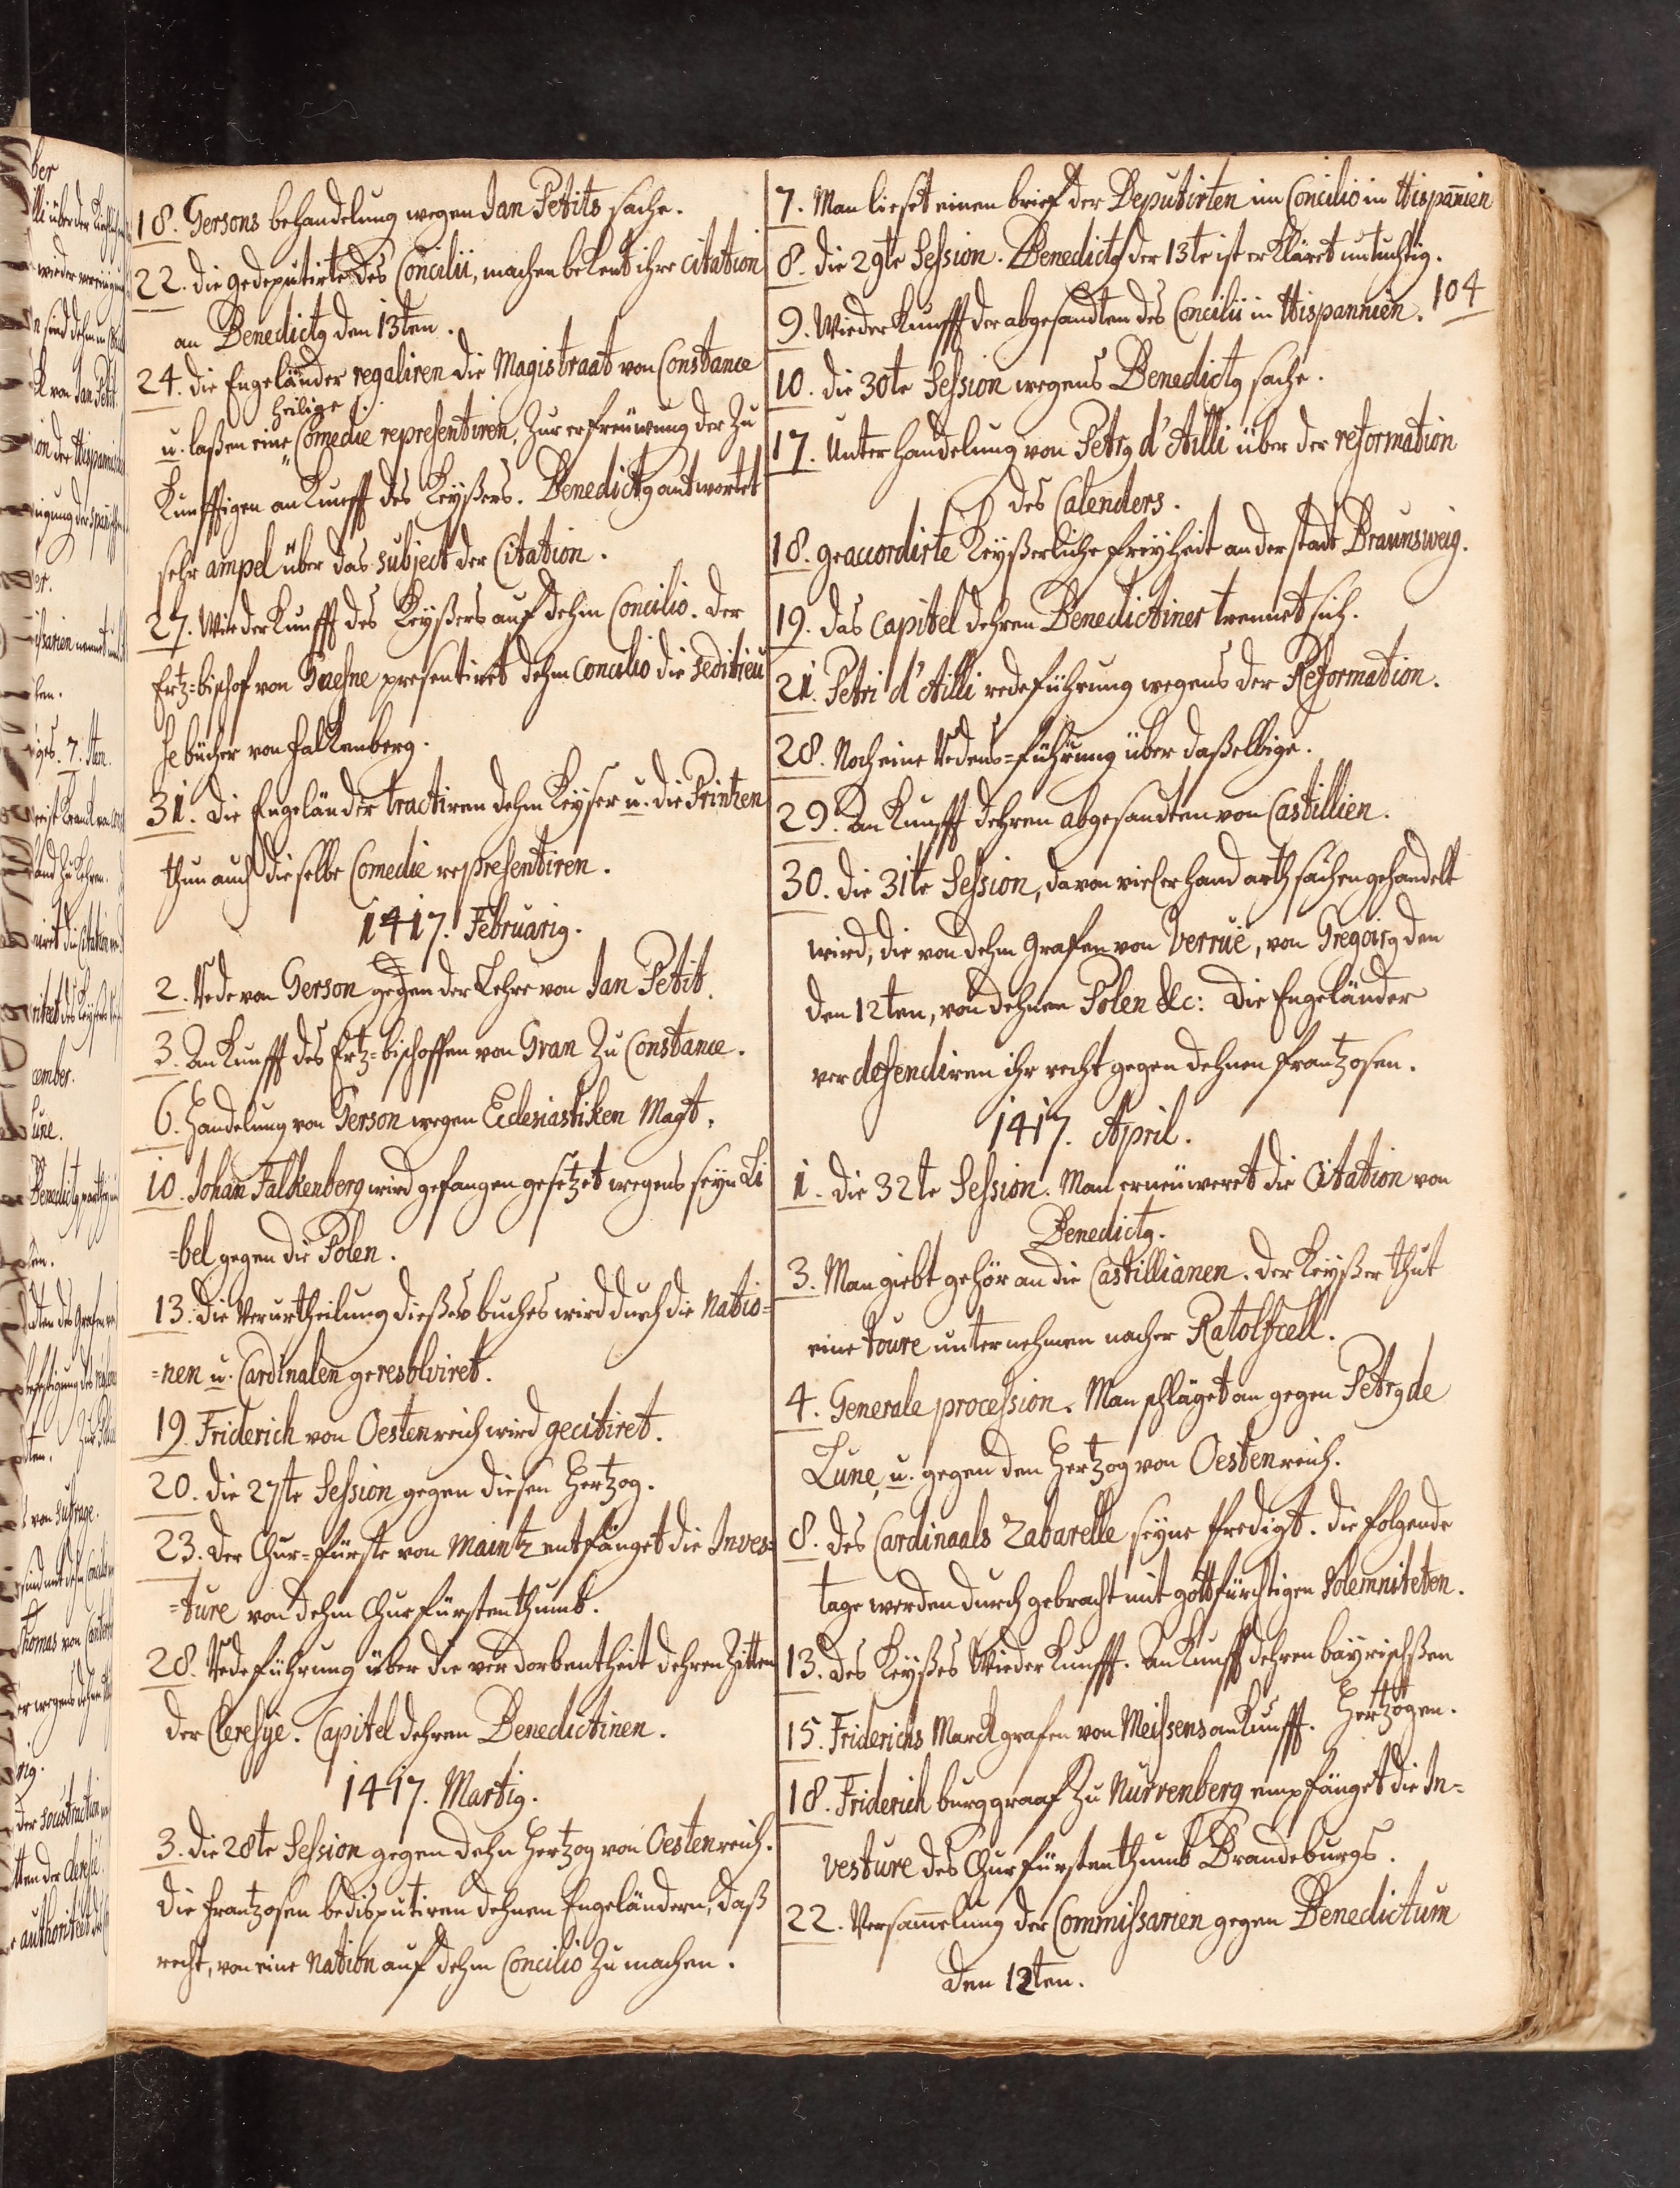 18. Gersons behandelung wegen Jan Petits sache.
22. die gedeputirte des Concilii, machen bekent ihre citation
an Benedictg den 13ten.
24. die Engeländer regaliren die Magistraat von Constance
heilige
u. laßen eine Comedie representiren, zur erfreüwung der zu
kunfftigen ankunfft des Keyßers. Benedictg antwortet
sehr ampel über das subject der Citation.
27. Wiederkunfft des Keyßers auf dehm Concilio. der
Ertz=bischof von Gnesne presentiret dehm Concilio die seditieu
se bücher von Falkenberg.
31. die Engeländer tractiren dehm Keyser u. die Printzen
thun auch dieselbe Comedie representiren.
1417. Februarig.
2. Rede von Gerson gegen der Lehre von Jan Petit.
3. Ankunfft des Ertz=bischoffen von Gran zu Constance.
6. Handelung von Gerson wegen Ecclesiastiken Magt.
10. Johan Falkenberg wird gefangen gesetzet wegens seyn Li
=bel gegen die Polen.
13. die Verurtheilung dießes buches wird durch die natio=
=nen u. Cardinalen geresolviret.
19. Friderich von Oestenreich wird gecitiret.
20. die 27ste Session gegen diesen Hertzog.
23. der Chur=Fürste von Maintz entfänget die Inves=
=ture von dehm Churfürstenthumb.
28. Redeführung über die verdorbentheit dehren Zitten
der Cleresye. Capitel dehren Benedictinen.
1417. Martig.
3. die 28te Session gegen dehn Hertzog von Oestenreich.
die Frantzosen bedisputiren dehnen Engeländern, daß
recht, von eine nation auf dehm Concilio zu machen.
7. Man lieset einen brief der Deputirten im Concilio in Hispanien
8. die 29te Session. Benedictg der 13te ist erkläret untuchtig.
9. Wiederkunfft der abgesandten des Concilii in Hispannien.
104
10. die 30te Session wegens Benedictg sache.
17. Unterhandelung von Petrg d'Ailli über der reformation
des Calenders.
18. geaccordirte Keyßerliche freyheit an der stadt Braunsweig.
19. das Capitel dehren Benedictiner trennet sich.
21. Petri d'Ailli redeführung wegens der Reformation.
28. Noch eine Redens=führung über daßelbige.
29. Ankunfft dehren abgesandten von Castillien.
30. die 31te Session, davon vielerhand arth sachen gehandelt
wird, die von dehm Grafen von Verrue, von Gregoirg den
den 12ten, von dehnen Polen &c: die Engeländer
verdefendiren ihr recht gegen dehnen Frantzosen.
1417. April.
1. die 32te Session. Man erneüweret die Citation von
Benedictg.
3. Man giebt gehör an die Castillianen. der Keyßer thut
eine toure unternehmen nacher Ratolfcell.
4. Generale procession. Man schläget an gegen Petrg de
Lune, u. gegen den Hertzog von Oestenreich.
8. des Cardinaals Zabarelle seyne Predigt. die folgende
tage werden durchgebracht mit gottfürchtigen solemniteten.
13. des Keyßes Wiederkunfft. ankunfft dehren bayrischßen
Hertzogen.
15. Friderichs Marckgrafen von Meissens ankunfft.
18. Friderich burggraaf zu Nurrenberg empfänget die In=
vesture des Churfürstenthumb Brandeburgs.
22. Versamelung der Commissarien gegen Benedictum
den 12ten.